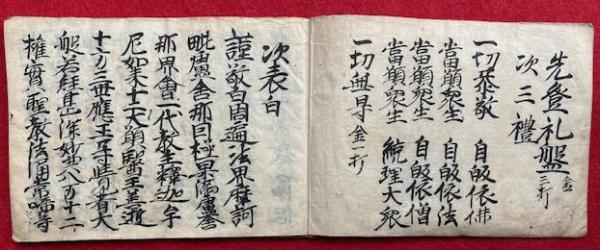 先登礼盤 金三打
次三禮
一切恭敬 自皈依佛
當願衆生 自皈依法
當願衆生 自皈依僧
當願衆生 統理大衆
一切無导 金一打
次表白
謹敬白周遍法界摩訶
毗盧舎那因極果満盧舎
那界會一代教主釋迦牟
尼如来十二大願醫王善逝
十方三世應正等覺着大
般若経甚深妙典八万十二
権實聖教法涌常啼等